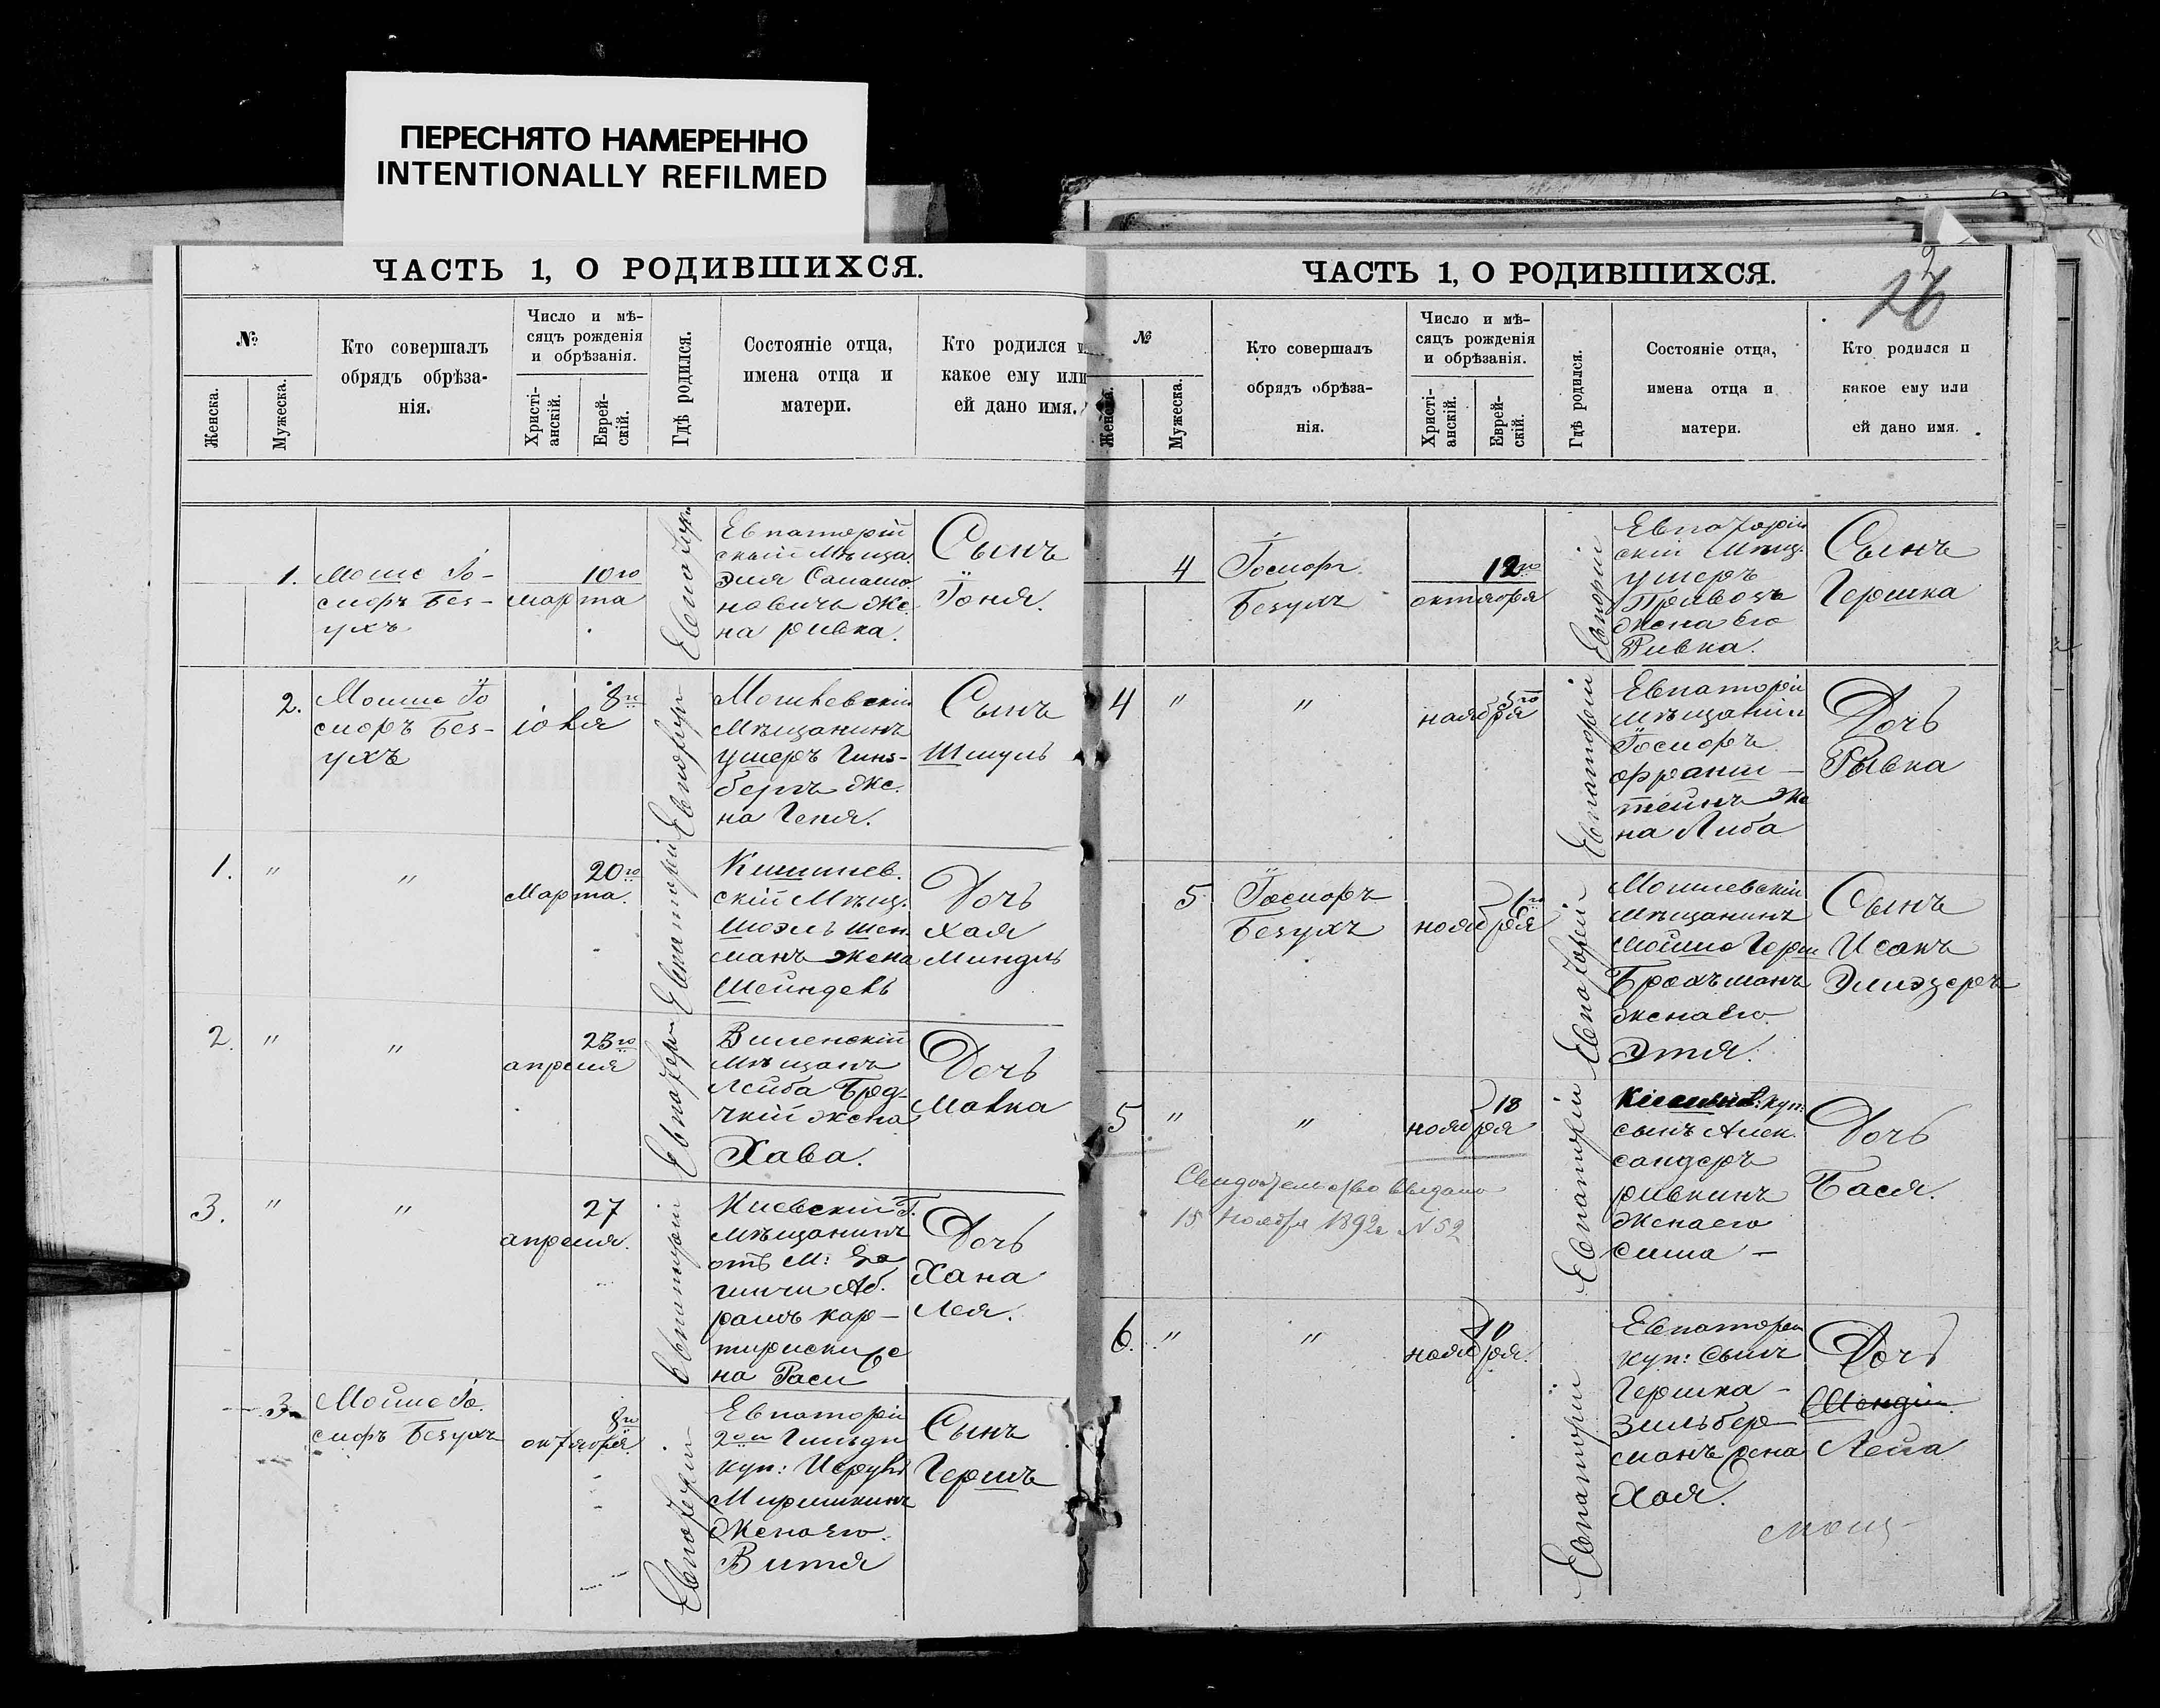 ПЕРЕСНЯТО НАМЕРЕННО
INTENTIONALLY REFILMED
ЧАСТЬ 1, О РОДИВШИХСЯ.
№
Женска.
Мужеска.
Кто совершалъ
обрядъ обрѣза-
нія.
Число и мѣ-
сяцъ рожденія
и обрѣзанія.
Христі-
анскій.
Еврей-
скій.
Гдѣ родился.
Состояніе отца,
имена отца и
матери.
Кто родился и
какое ему или
ей дано имя.
1.
Моше Іо-
сифъ Без-
ухъ
10го
марта
Евпаторіи
Евпаторій
скій Мѣща.
Эля
новичъ Же
на Ривка.
Сынъ
Іоня.
2.
Моише Іо
сифъ Без-
ухъ
8го
Евпаторіи
Мѣщанинъ
Ушеръ Гинз-
бергъ Же.
на Геня.
Сынъ
Шмуль
1. " "
20го
Марта.
Евпаторіи
Кишинев.
скій Мѣщ.
Шоэль
манъ Жена
Шейндель
Дочь
Хая
Миндль
2. " "
23го
апреля
Евпаторіи
Виленскій
Мѣщанъ
Лейба Брод-
чкій жена
Хава.
Дочь
Малка
3. " "
27
апреля.
Евпаторіи
Киевскій Г.
Мѣщанинъ
отъ М:
Аб.
рамъ Кар-
на Раси
Дочь
Хана
Лея.
3
Мойше Іо.
сифъ Безухъ
8го
октября.
Евпаторіи
Евпаторій
2ой Гильди
куп:
Миришкинъ
Жена его
Витя
Сынъ
Гершъ
ЧАСТЬ 1, О РОДИВШИХСЯ.
2
26
№
Женска.
Мужеска.
Кто совершалъ
обрядъ обрѣза-
нія.
Число и мѣ-
сяцъ рожденія
и обрѣзанія.
Христі-
анскій.
Еврей-
скій.
Гдѣ родился.
Состояніе отца,
имена отца и
матери.
Кто родился и
какое ему или
ей дано имя.
4
Іосифъ
Безухъ
12го
октября
Евпаторіи
Евпаторій
скій Мѣщ.
Ушеръ
Привозъ
Жена Его
Ривка.
Сынъ
Гершка
4 " "
5го
наября
Евпаторіи
Евпаторій
мѣщанин
Іосифъ
Франш-
тейнъ Же
на Либа
Дочь
Рывка
5.
Іосифъ
Безухъ
6го
ноября
Евпаторіи
Мѣщанинъ
Мойше Герш
Брохъманъ
Жена его
Этя.
Сынъ
Исакъ
Элиэзеръ
5 " "
18
ноября
Евпаторіи
куп:
сынъ Алек
сандеръ
Ривкинъ
Жена его
Сима -
Дочь
Бася.
Свидѣтельство выдано
15 Ноября 1892г N 52
6. " "
10
ноября.
Евпаторіи
Евпаторій
куп: Сынъ
Гершка -
Зильбер
манъ жена
Хая.
Дочь
Лейа